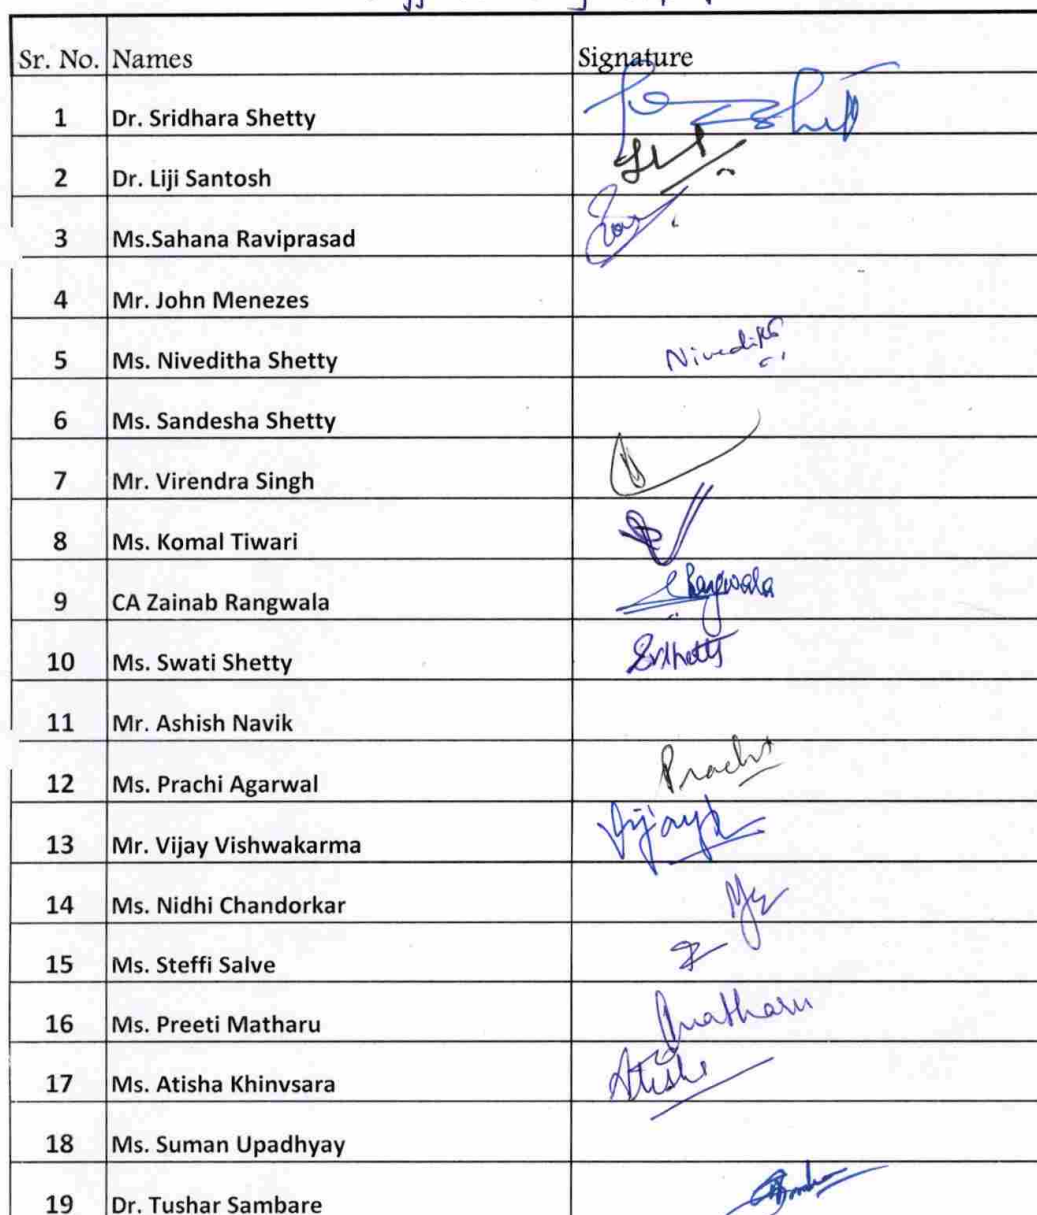 Sr. No. Names Signature
1 Dr. Sridhara Shetty
2 Dr. Liji Santosh
3 Ms.Sahana Raviprasad
4 Mr. John Menezes
5 Ms. Niveditha Shetty Niveditha
6 Ms. Sandesha Shetty
7 Mr. Virendra Singh
8 Ms. Komal Tiwari
9 CA Zainab Rangwala Rangwala
10 Ms. Swati Shetty
11 Mr. Ashish Navik
12 Ms. Prachi Agarwal Prachi
13 Mr. Vijay Vishwakarma Vijay
14 Ms. Nidhi Chandorkar
15 Ms. Steffi Salve
16 Ms. Preeti Matharu Pmatharu
17 Ms. Atisha Khinvsara Atisha
18 Ms. Suman Upadhyay
19 Dr. Tushar Sambare